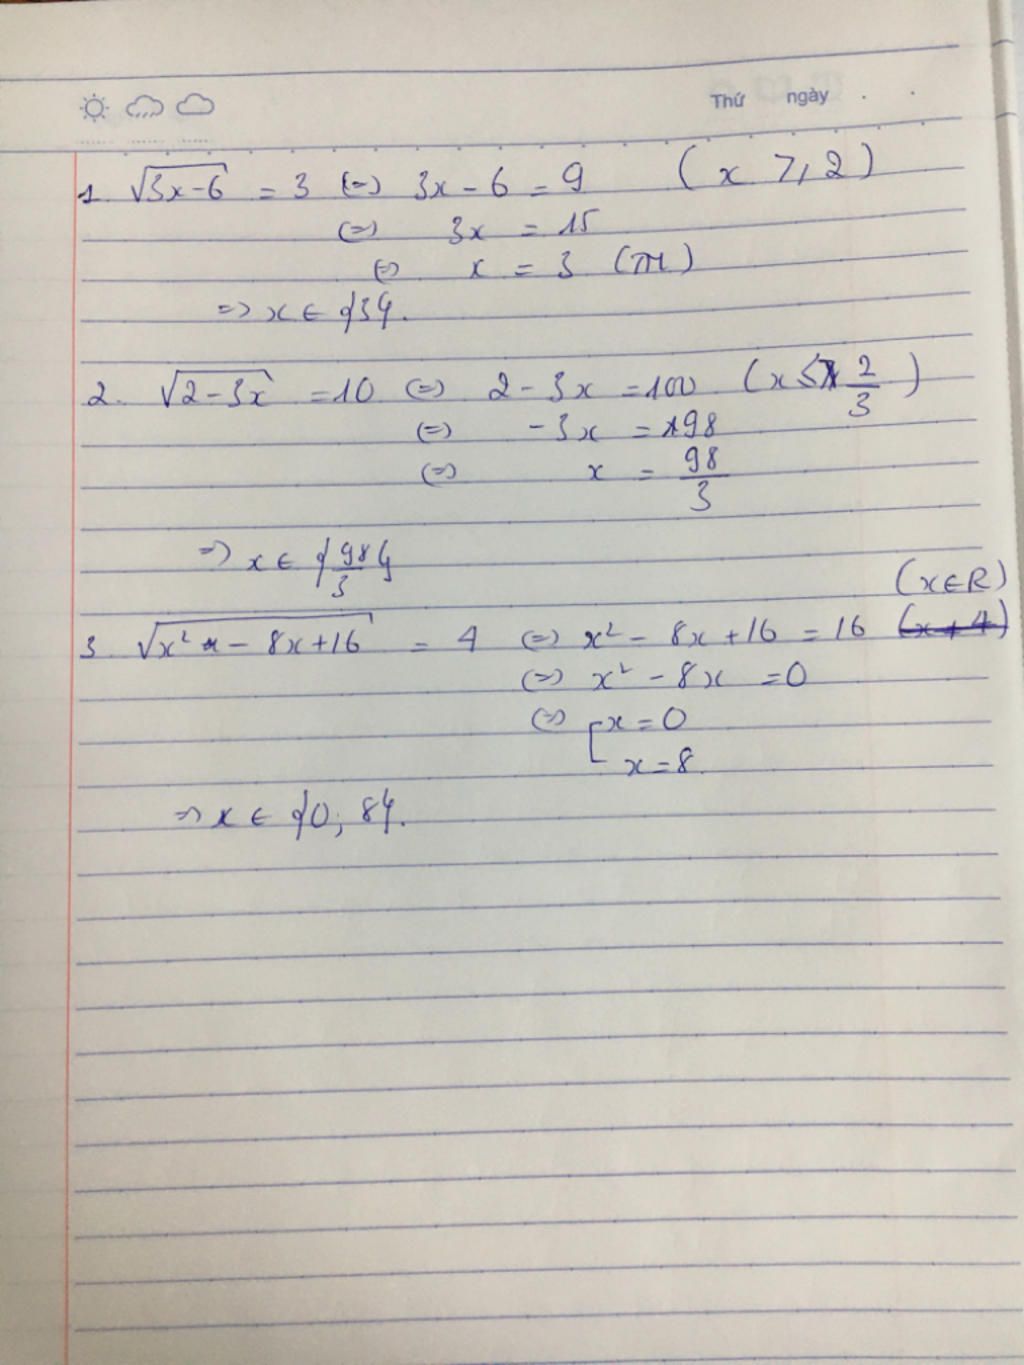 Thứ ngày
1. √(3x-6) = 3 (=) 3x - 6 = 9 (x ≥ 2)
(=) 3x = 15
(=) x = 3 (TM)
=> x ∈ {3}.
2. √(2-3x) = 10 (=) 2 - 3x = 100 (x ≤ 2/3)
(=) -3x = 98
(=) x = 98/3
=> x ∈ {98/3}
(x∈R)
3. √(x² - 8x+16) = 4 (=) x² - 8x + 16 = 16 (x ≠ 4)
(=) x² - 8x = 0
(=) [x = 0
x = 8.
=> x ∈ {0; 8}.